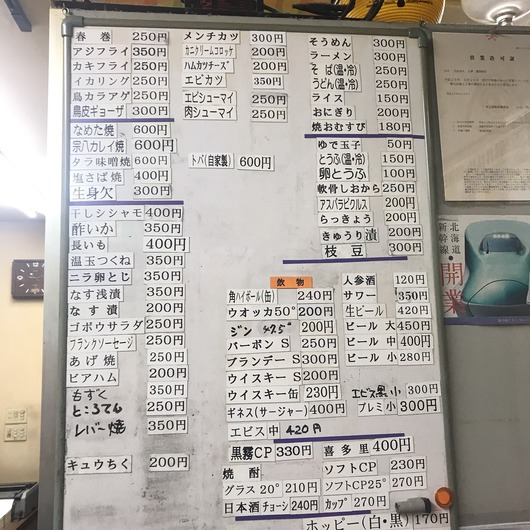 春巻 250円
アジフライ 350円
カキフライ 250円
イカリング 250円
鳥カラアゲ 250円
鳥皮ギョーザ 300円
なめた焼 600円
宗八カレイ焼 600円
タラ味噌焼 600円
塩さば焼 400円
生身欠 300円
干しシシャモ 400円
酢いか 350円
長いも 400円
温玉つくね 350円
ニラ卵とじ 350円
なす浅漬 350円
なす漬 200円
ゴボウサラダ 250円
フランクソーセージ 250円
あげ焼 250円
ビアハム 200円
もずく 350円
ところてん 250円
レバー焼 350円
キュウちく 200円
メンチカツ 300円
カニクリームコロッケ 200円
ハムカツチーズ 200円
エビカツ 350円
エビシューマイ 250円
肉シューマイ 250円
トバ(自家製) 600円
そうめん 300円
ラーメン 300円
そば(温・冷) 250円
うどん(温・冷) 250円
ライス 150円
おにぎり 200円
焼おむすび 180円
ゆで玉子 50円
とうふ(温・冷) 150円
卵とうふ 100円
軟骨しおから 250円
アスパラピクルス 200円
らっきょう 200円
きゅうり漬 200円
枝豆 300円
飲物
角ハイボール(缶) 240円
ウオッカ50° 200円
ジン 47.5° 200円
バーボンS 250円
ブランデーS 300円
ウイスキーS 200円
ウイスキー缶 230円
ギネス(サージャー) 400円
エビス中 420円
人参酒 120円
サワー 350円
生ビール 420円
ビール 大 450円
ビール 中 400円
ビール 小 280円
エビス黒小 300円
プレミ小 300円
黒霧CP 330円
喜多里 400円
焼酎
ソフトCP 230円
グラス20° 210円
ソフトCP25° 270円
日本酒 チョーシ 240円
カップ 270円
ホッピー(白・黒) 170円
営業許可証
北海道新幹線
開業